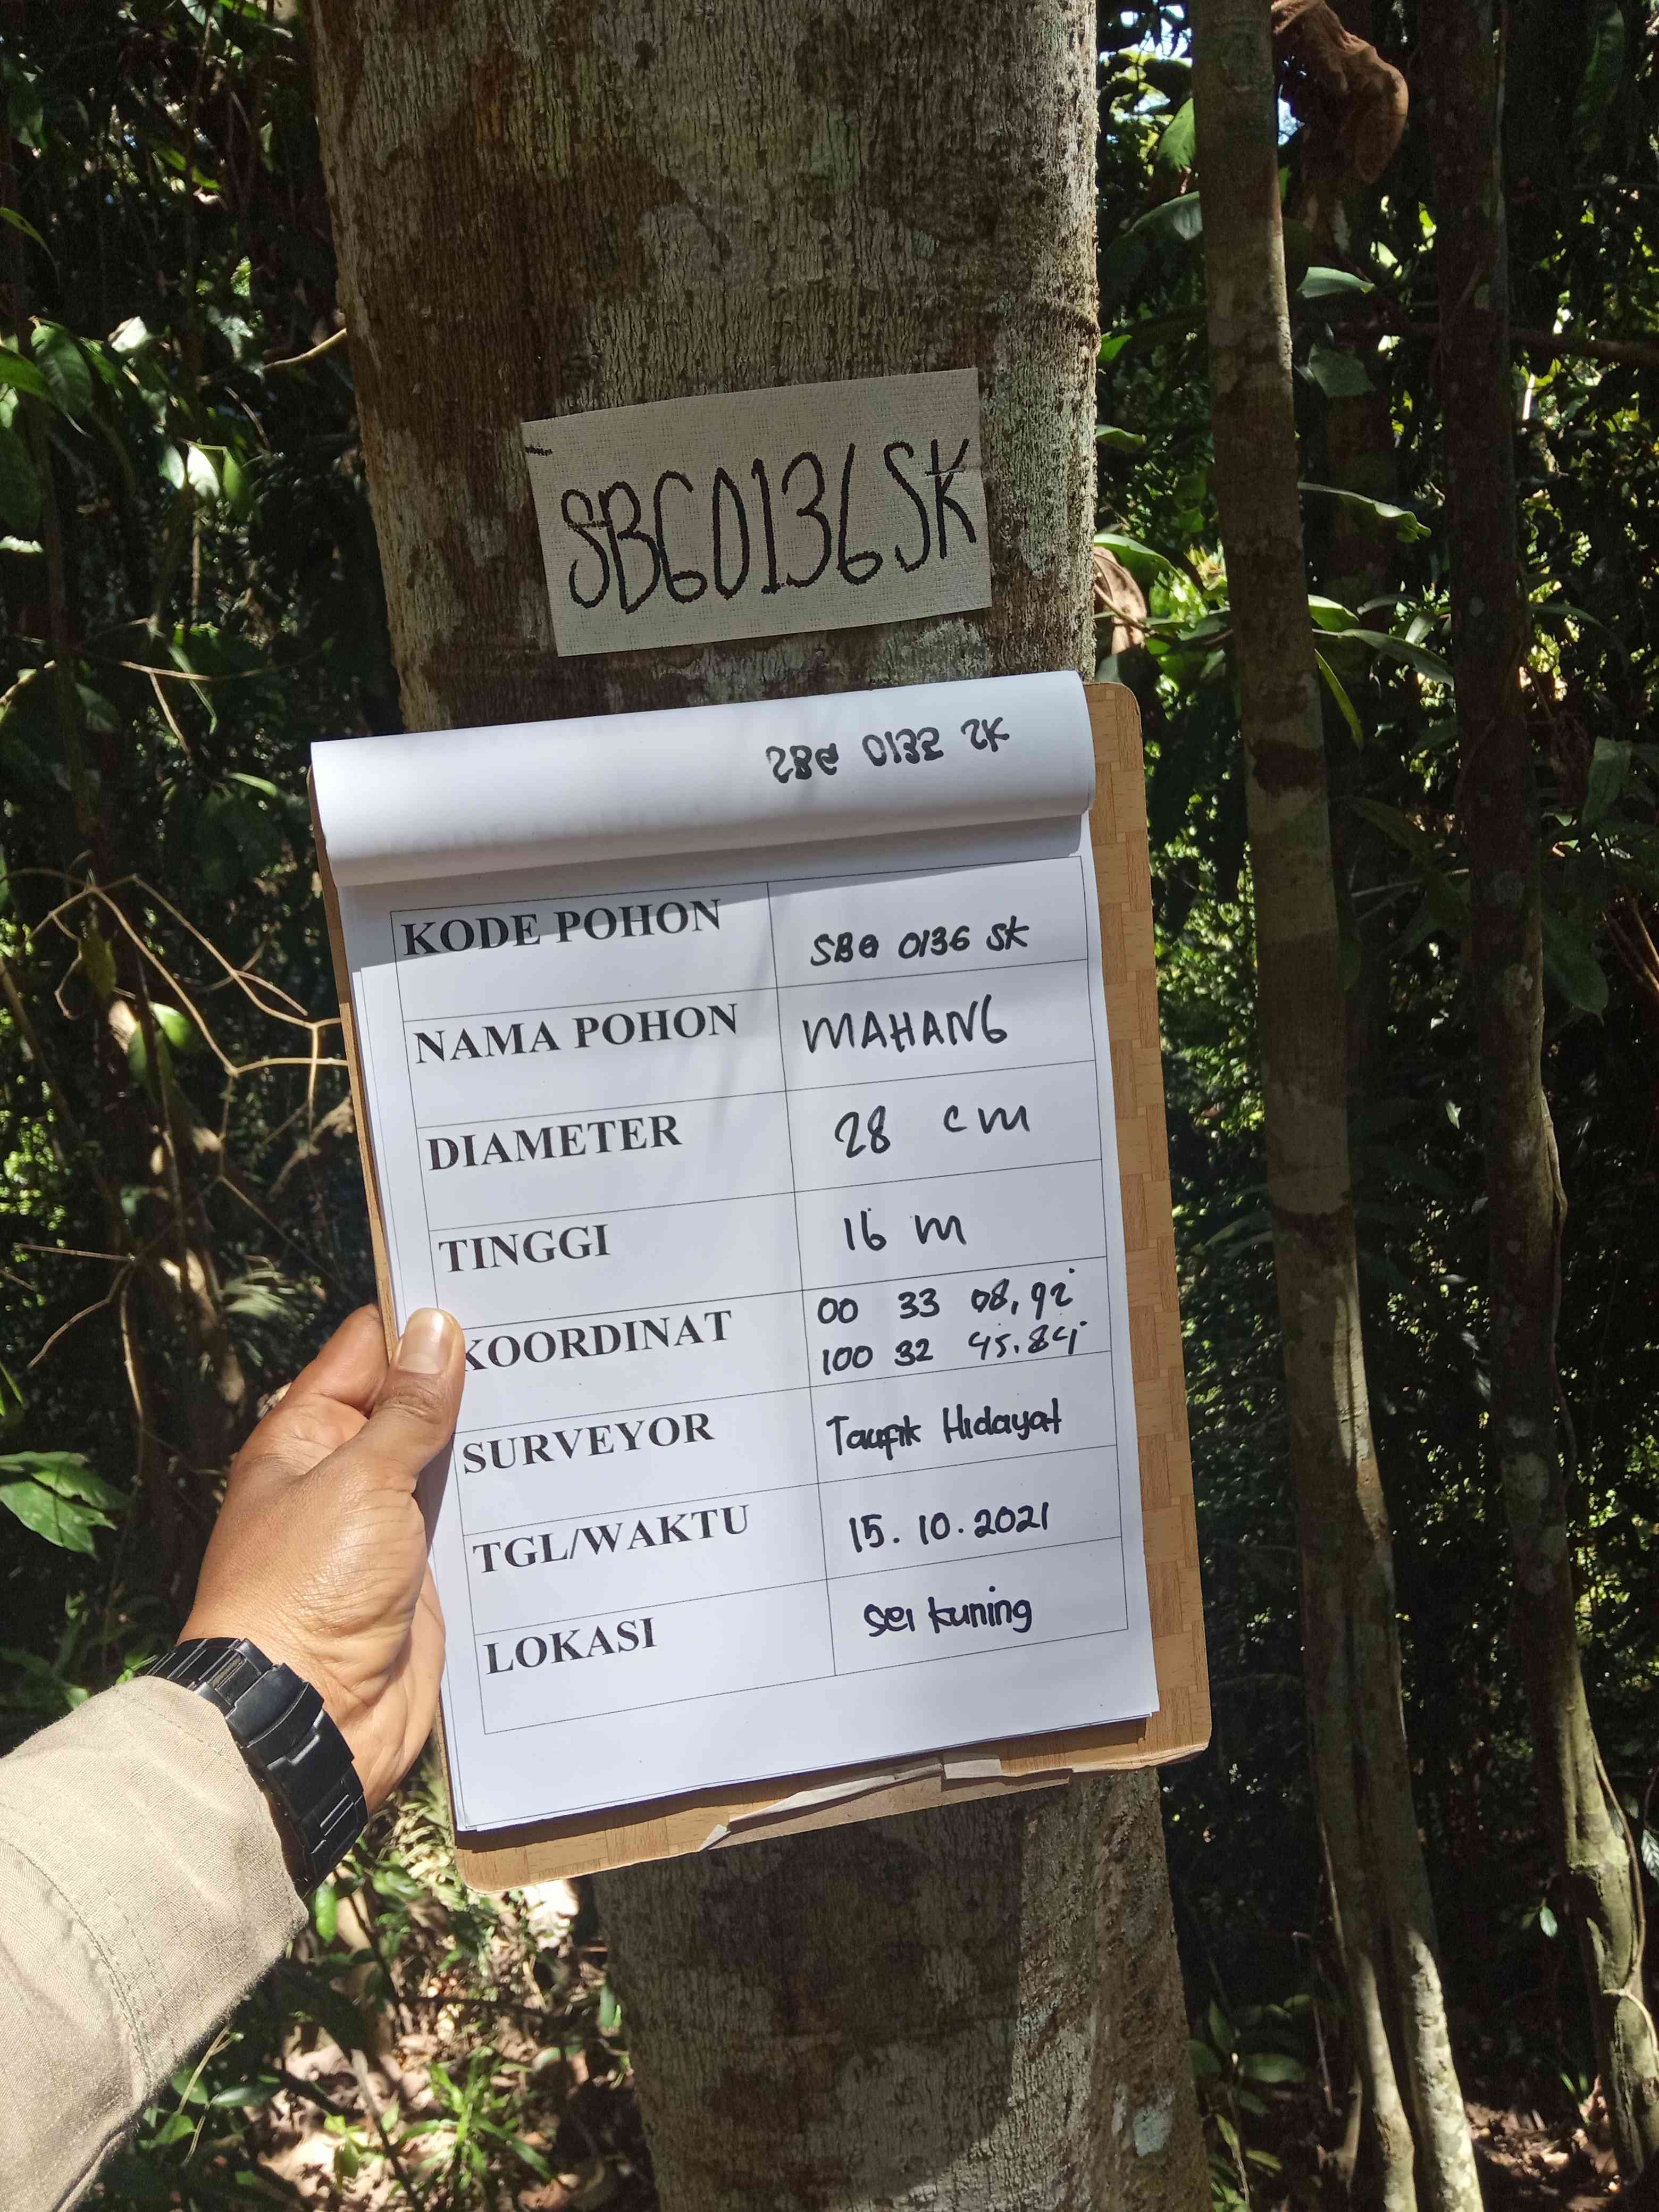 SBG0136SK
SBG 0135 SK
KODE POHON SBG 0136 SK
NAMA POHON MAHANG
DIAMETER 28 cm
TINGGI 16 m
KOORDINAT 00 33 08,92"
100 32 45.84"
SURVEYOR Taufik Hidayat
TGL/WAKTU 15.10.2021
LOKASI Sei kuning